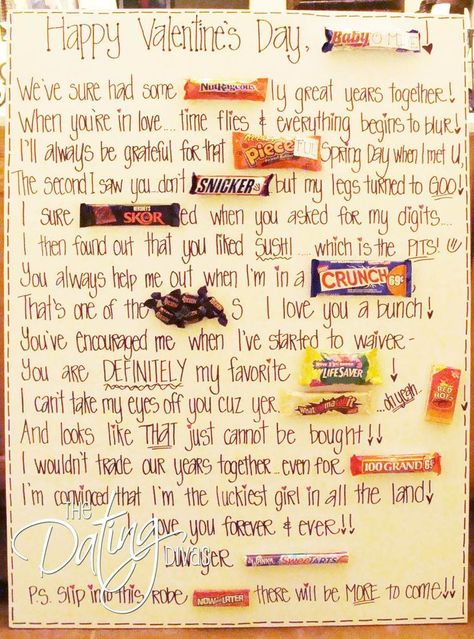 Happy Valentine's Day, Baby O MINE!
We've sure had some NutRageous ly great years together!
When you're in love.... time flies & everything begins to blur!
I'll always be grateful for that Pieces FUL Spring Day when I met U,
The second I saw you..don't SNICKER but my legs turned to GOO!
I sure HERSHEY'S SKOR ed when you asked for my digits....
I then found out that you liked SUSHI .... which is the PITS!
You always help me out when I'm in a CRUNCH 69¢
That's one of the S I love you a bunch!
You've encouraged me when I've started to waiver-
You are DEFINITELY my favorite LIFESAVER !
I can't take my eyes off you cuz yer WhatchamaHOT ...oh yeah. RED HOTS
And looks like THAT just cannot be bought!!
I wouldn't trade our years together...even for 100 GRAND 69¢
I'm convinced that I'm the luckiest girl in all the land!
I love you forever & ever!!
Your ever WONKA SweeTARTS
P.S. Slip into this robe NOW and LATER there will be MORE to come!!
The Dating Divas